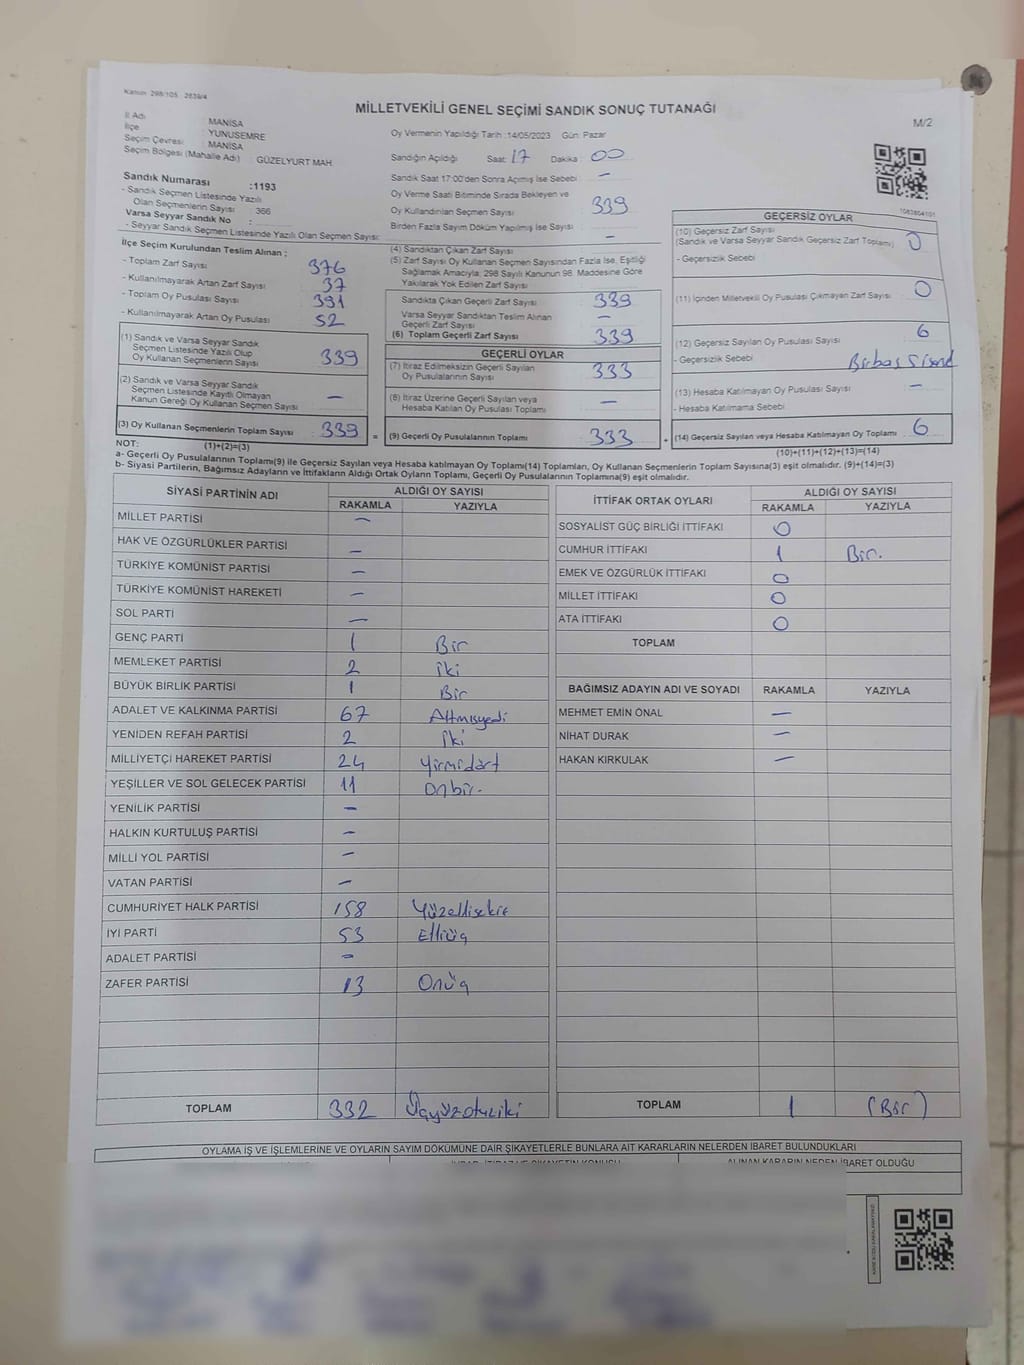 Kanun 298/105 2839/4
MİLLETVEKİLİ GENEL SEÇİMİ SANDIK SONUÇ TUTANAĞI
M/2
İl Adı MANİSA
İlçe YUNUSEMRE
Seçim Çevresi MANİSA
Seçim Bölgesi (Mahalle Adı) GÜZELYURT MAH.
Sandık Numarası :1193
- Sandık Seçmen Listesinde Yazılı
Olan Seçmenlerin Sayısı 366
Varsa Seyyar Sandık No :
- Seyyar Sandık Seçmen Listesinde Yazılı Olan Seçmen Sayısı:
Oy Vermenin Yapıldığı Tarih :14/05/2023 Gün: Pazar
Sandığın Açıldığı Saat 17 Dakika 00
Sandık Saat 17:00'den Sonra Açılmış İse Sebebi -
Oy Verme Saati Bitiminde Sırada Bekleyen ve
Oy Kullandırılan Seçmen Sayısı 339
Birden Fazla Sayım Döküm Yapılmış İse Sayısı -
1083804101
İlçe Seçim Kurulundan Teslim Alınan ;
- Toplam Zarf Sayısı 376
- Kullanılmayarak Artan Zarf Sayısı 37
- Toplam Oy Pusulası Sayısı 391
- Kullanılmayarak Artan Oy Pusulası 52
(1) Sandık ve Varsa Seyyar Sandık
Seçmen Listesinde Yazılı Olup
Oy Kullanan Seçmenlerin Sayısı 339
(2) Sandık ve Varsa Seyyar Sandık
Seçmen Listesinde Kayıtlı Olmayan
Kanun Gereği Oy Kullanan Seçmen Sayısı -
(3) Oy Kullanan Seçmenlerin Toplam Sayısı 339 =
(4) Sandıktan Çıkan Zarf Sayısı
(5) Zarf Sayısı Oy Kullanan Seçmen Sayısından Fazla İse, Eşitliği
Sağlamak Amacıyla, 298 Sayılı Kanunun 98. Maddesine Göre
Yakılarak Yok Edilen Zarf Sayısı
Sandıkta Çıkan Geçerli Zarf Sayısı 339
Varsa Seyyar Sandıktan Teslim Alınan
Geçerli Zarf Sayısı -
(6) Toplam Geçerli Zarf Sayısı 339
GEÇERLİ OYLAR
(7) İtiraz Edilmeksizin Geçerli Sayılan
Oy Pusulalarının Sayısı 333
(8) İtiraz Üzerine Geçerli Sayılan veya
Hesaba Katılan Oy Pusulası Toplamı -
(9) Geçerli Oy Pusulalarının Toplamı 333 +
GEÇERSİZ OYLAR
(10) Geçersiz Zarf Sayısı
(Sandık ve Varsa Seyyar Sandık Geçersiz Zarf Toplamı) 0
- Geçersizlik Sebebi
(11) İçinden Milletvekili Oy Pusulası Çıkmayan Zarf Sayısı 0
(12) Geçersiz Sayılan Oy Pusulası Sayısı 6
- Geçersizlik Sebebi
(13) Hesaba Katılmayan Oy Pusulası Sayısı -
- Hesaba Katılmama Sebebi
(14) Geçersiz Sayılan veya Hesaba Katılmayan Oy Toplamı 6
NOT: (1)+(2)=(3)
(10)+(11)+(12)+(13)=(14)
a- Geçerli Oy Pusulalarının Toplamı(9) ile Geçersiz Sayılan veya Hesaba katılmayan Oy Toplamı(14) Toplamları, Oy Kullanan Seçmenlerin Toplam Sayısına(3) eşit olmalıdır. (9)+(14)=(3)
b- Siyasi Partilerin, Bağımsız Adayların ve İttifakların Aldığı Ortak Oyların Toplamı, Geçerli Oy Pusulalarının Toplamına(9) eşit olmalıdır.
SİYASİ PARTİNİN ADI ALDIĞI OY SAYISI
RAKAMLA YAZIYLA
MİLLET PARTİSİ -
HAK VE ÖZGÜRLÜKLER PARTİSİ -
TÜRKİYE KOMÜNİST PARTİSİ -
TÜRKİYE KOMÜNİST HAREKETİ -
SOL PARTİ -
GENÇ PARTİ 1 Bir
MEMLEKET PARTİSİ 2 iki
BÜYÜK BİRLİK PARTİSİ 1 Bir
ADALET VE KALKINMA PARTİSİ 67 Altmışyedi
YENİDEN REFAH PARTİSİ 2 iki
MİLLİYETÇİ HAREKET PARTİSİ 24 Yirmidört
YEŞİLLER VE SOL GELECEK PARTİSİ 11 onbir.
YENİLİK PARTİSİ -
HALKIN KURTULUŞ PARTİSİ -
MİLLİ YOL PARTİSİ -
VATAN PARTİSİ -
CUMHURİYET HALK PARTİSİ 158 Yüzellisekiz
İYİ PARTİ 53 Elliüç
ADALET PARTİSİ -
ZAFER PARTİSİ 13 Onüç
TOPLAM 332 Üçyüzotuziki
İTTİFAK ORTAK OYLARI ALDIĞI OY SAYISI
RAKAMLA YAZIYLA
SOSYALİST GÜÇ BİRLİĞİ İTTİFAKI 0
CUMHUR İTTİFAKI 1 Bir.
EMEK VE ÖZGÜRLÜK İTTİFAKI 0
MİLLET İTTİFAKI 0
ATA İTTİFAKI 0
TOPLAM
BAĞIMSIZ ADAYIN ADI VE SOYADI RAKAMLA YAZIYLA
MEHMET EMİN ÖNAL -
NİHAT DURAK -
HAKAN KIRKULAK -
TOPLAM 1 (Bir)
OYLAMA İŞ VE İŞLEMLERİNE VE OYLARIN SAYIM DÖKÜMÜNE DAİR ŞİKAYETLERLE BUNLARA AİT KARARLARIN NELERDEN İBARET BULUNDUKLARI
ALINAN KARARIN NEDEN İBARET OLDUĞU